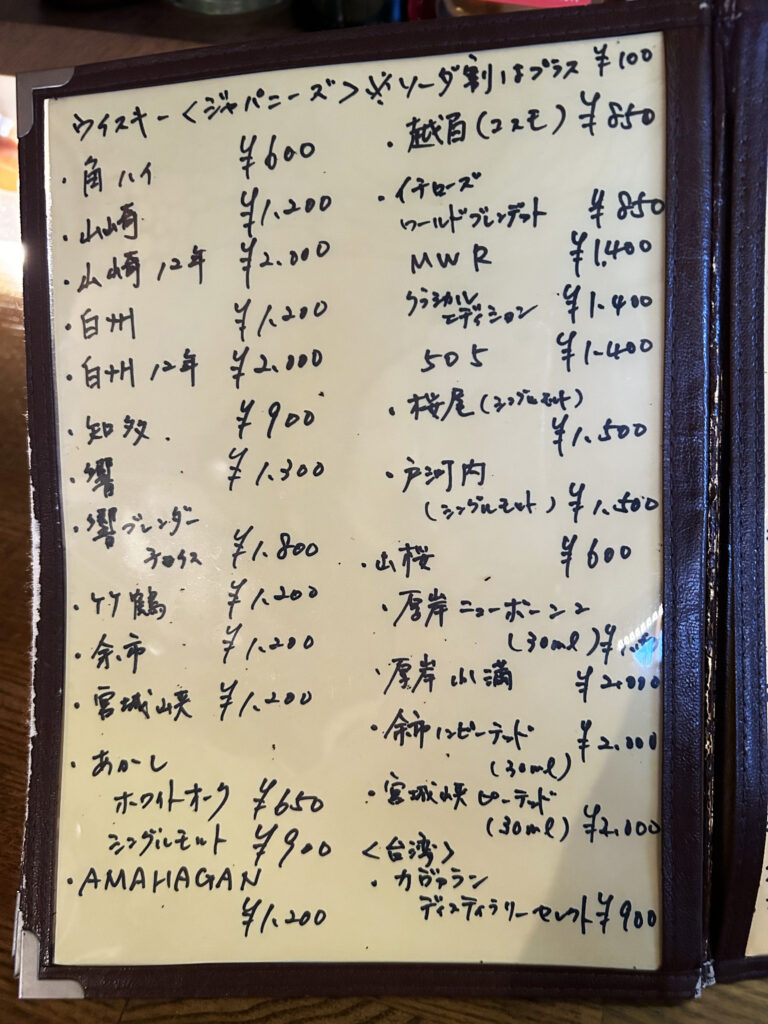 ウイスキー<ジャパニーズ>※ソーダ割はプラス ¥100
・角ハイ ¥600
・山崎 ¥1.200
・山崎 12年 ¥2.000
・白州 ¥1.200
・白州 12年 ¥2.000
・知多 ¥900
・響 ¥1.300
・響ブレンダー
チョイス ¥1.800
・竹鶴 ¥1.200
・余市 ¥1.200
・宮城峡 ¥1.200
・あかし
ホワイトオーク ¥650
シングルモルト ¥900
・AMAHAGAN
¥1.200
・越百(コスモ) ¥850
・イチローズ
ワールドブレンデット ¥850
MWR ¥1.400
クラシカル
エディション ¥1.400
505 ¥1.400
・桜尾(シングルモルト)
¥1.500
・戸河内
(シングルモルト) ¥1.500
・山桜 ¥600
・厚岸 ニューボーン2
(30ml) ¥
・厚岸 小満 ¥2.000
・余市ノンピーテッド ¥2.000
(30ml)
・宮城峡 ピーテッド
(30ml) ¥2.000
<台湾>
・カヴァラン
ディスティラリーセレクト ¥900